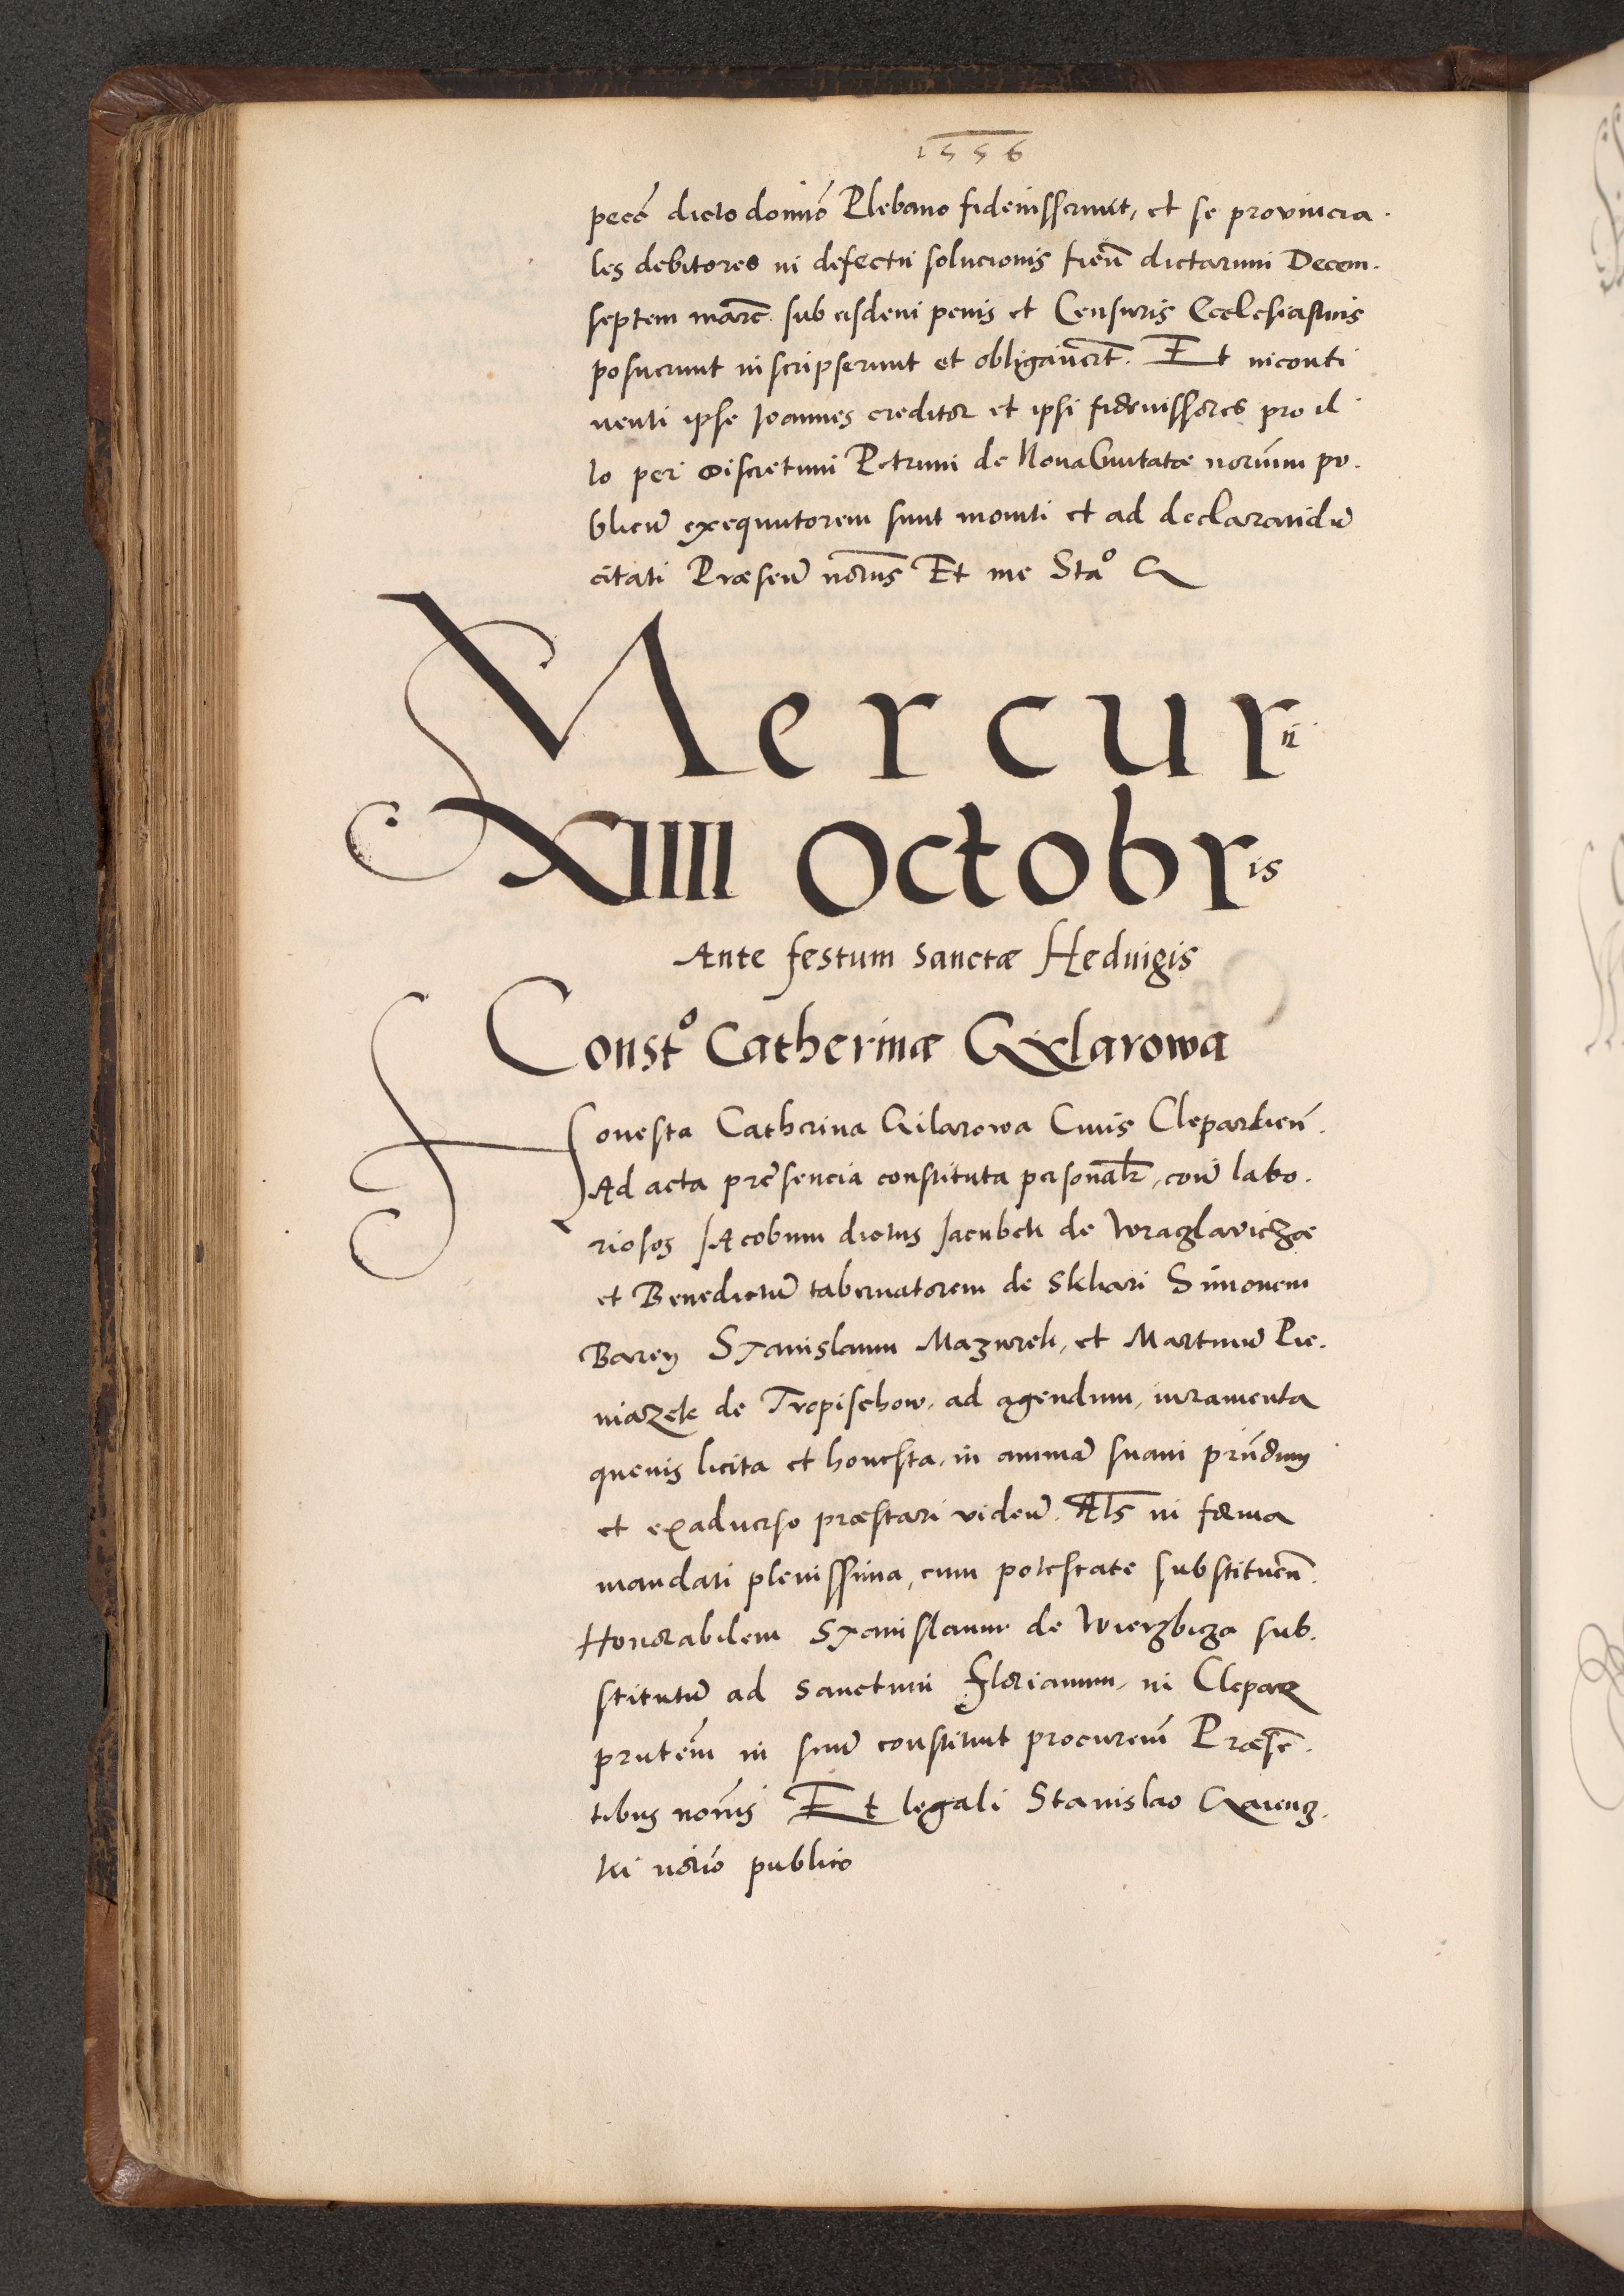 1556
pecē dicto domīo Plebano fideiusserunt, et se provincia.
les debitores in defectu solucionis fieñ dictarum Decem.
septem marc̄ sub eisdem penis et Censuris Ecclesiasticis
posuerunt inscripserunt et obligaver̄t. Et inconti
nenti ipse Joannes creditor et ipsi fideiussores pro il
lo per discretum Petrum de Nova Civitatæ notorium pu.
blicū exequutorem sunt moniti et ad declarandū
citati Præseñ notus Et me Staº G
Mercurii
XIIII Octobris
Ante festum sanctæ Heduigis
Constº Catherinæ Gxlarowa
Honesta Catherina Gilarowa Ciuis Clepardieñ.
Ad acta presencia constituta personalr̄, coūr labo.
riosos Jacobum dictus Jacubek de Wraglavichæ
et Benedictū tabernatorem de Skhari Simonem
Barey Stanislaum Mazurek, et Martinū Pie.
niazek de Tropischow, ad agendum, iuramenta
queuis licita et honesta, in animā suam prñdum
et exaduerso præstari videñ. Als̄ in forma
mandati plenissima, cum potestate substitueñ.
Honorabilem Stanislaum de Wierzbicza sub.
stitutū ad sanctum Florianum, in Clepar
prntem in suū constituit procurem̄ Præsē.
tibus nomīs Et legali Stanislao Gaieng.
ki notrīo publico